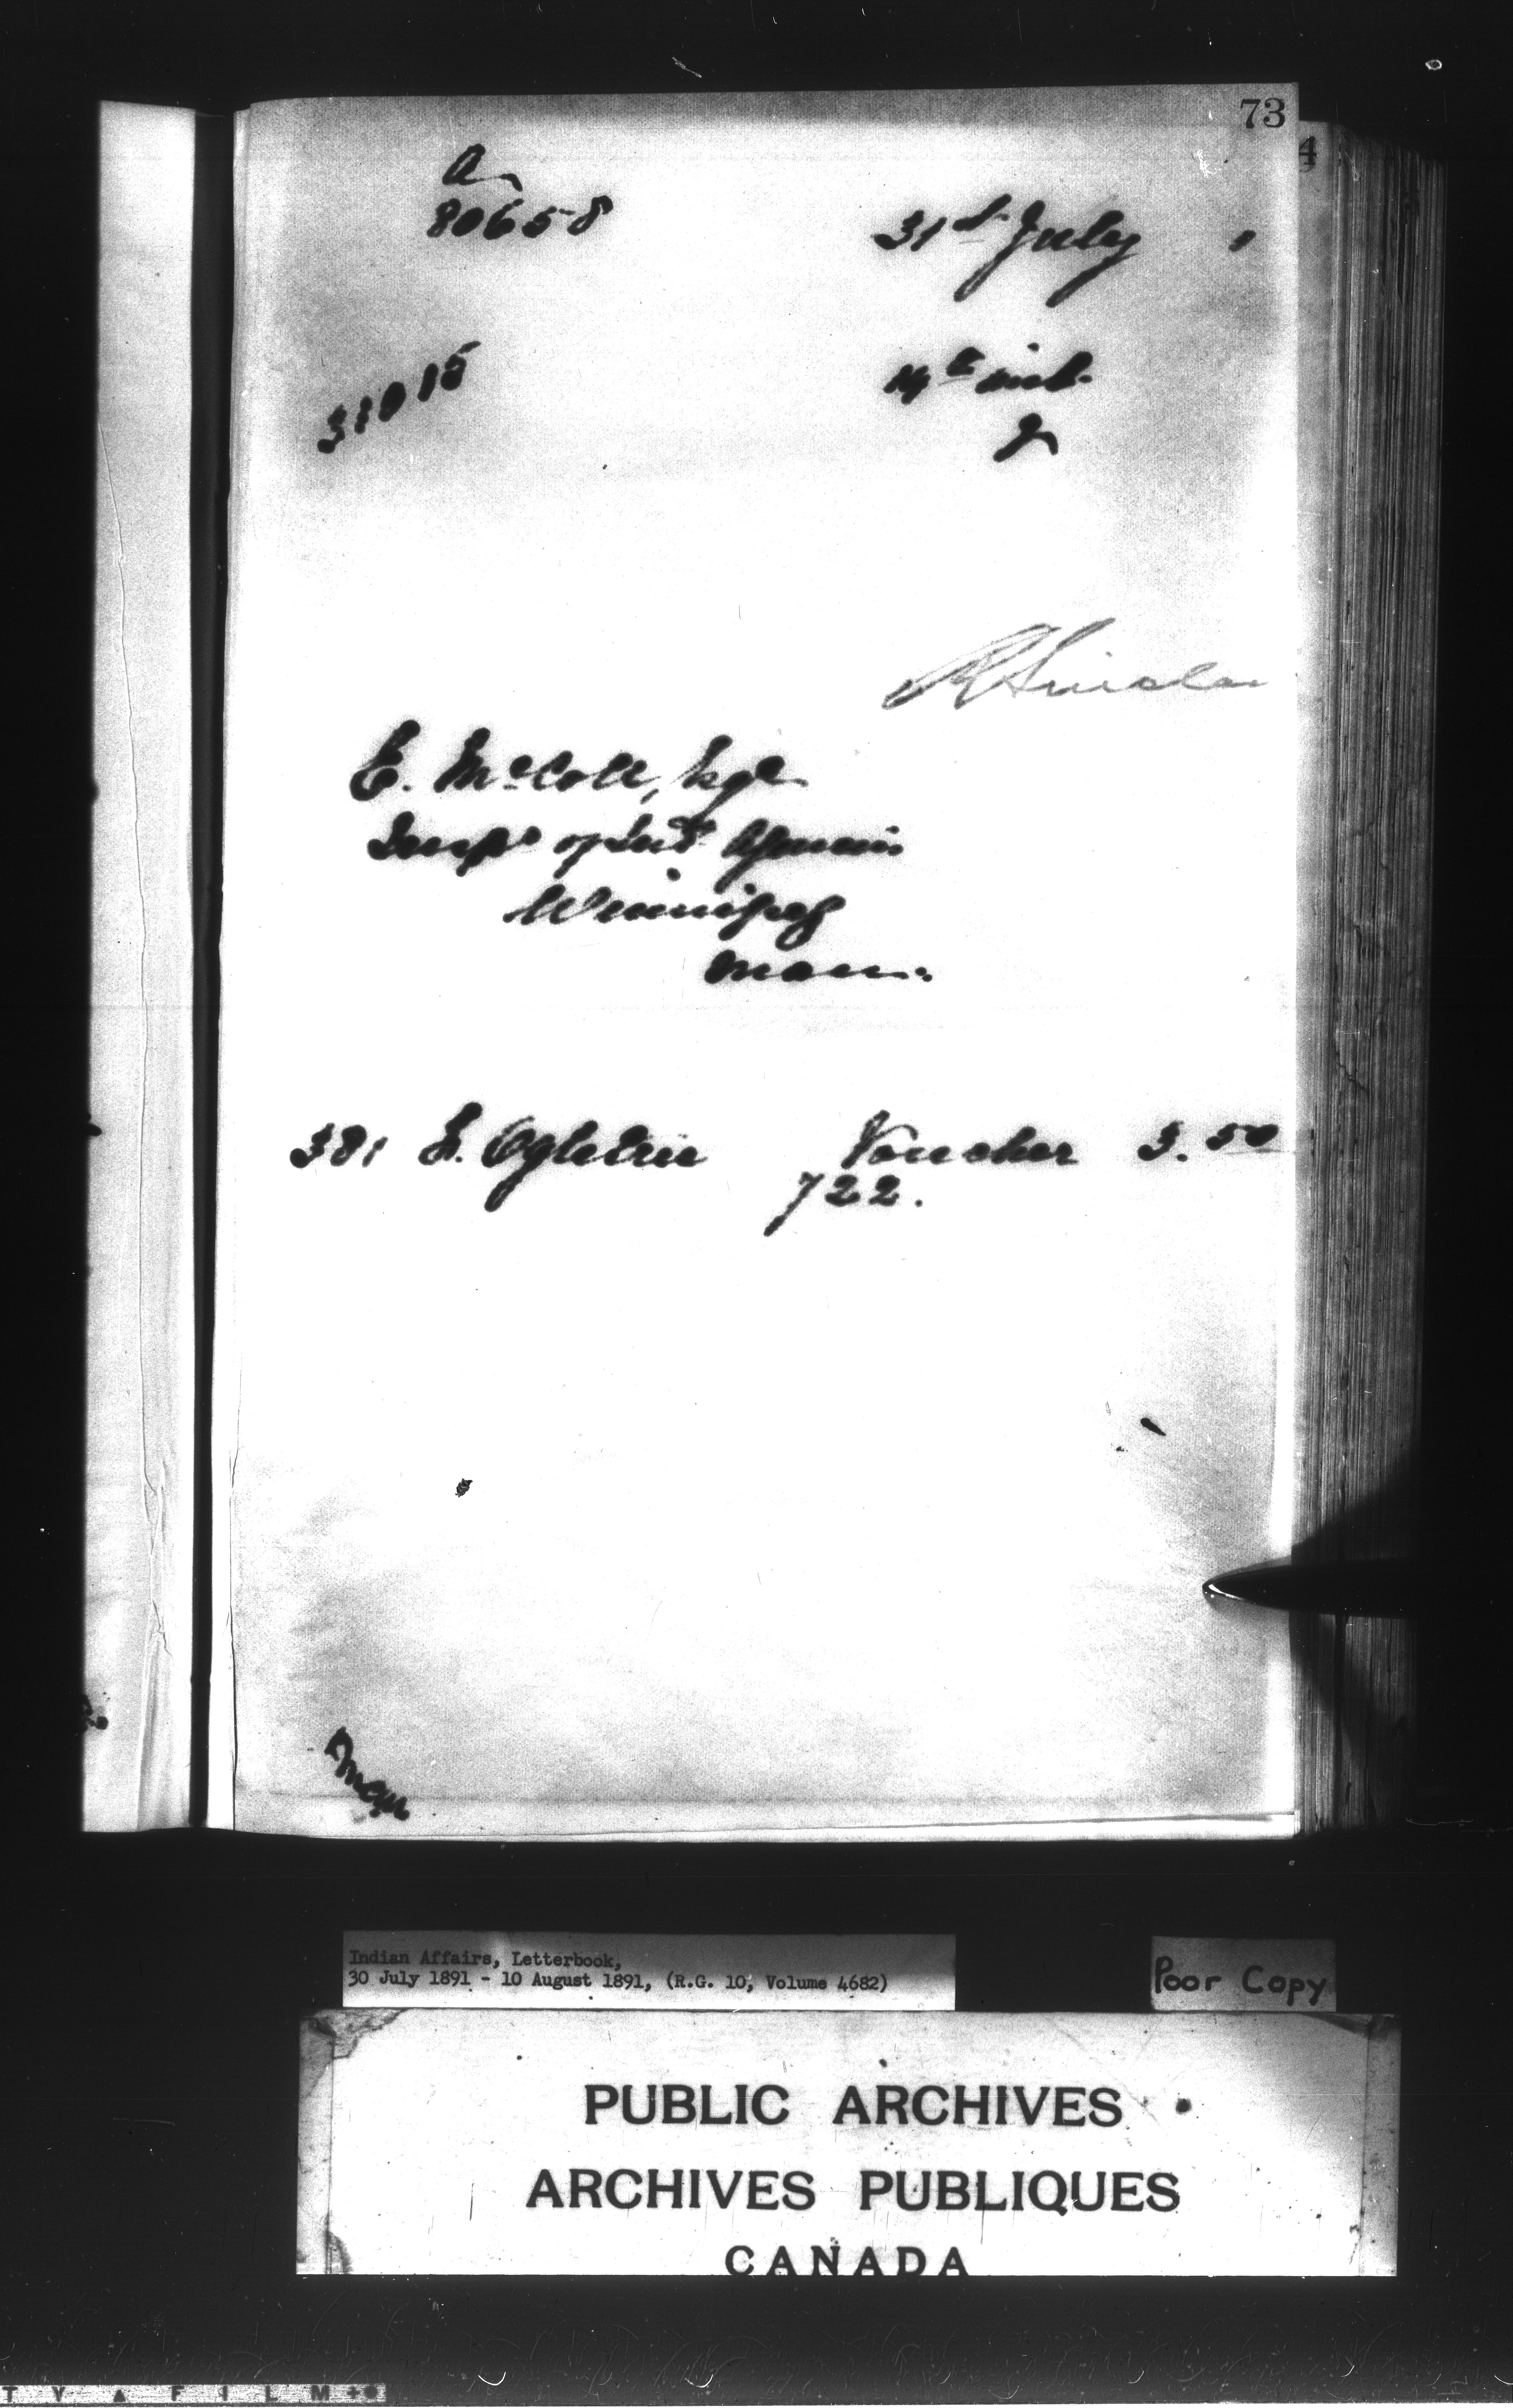 73
4
A
80658
31st July "
14th inst.
R Sinclair
E. McColl, Esqre
Inspr of Ind. Agencies
Winnipeg
Man.
381 L. Ogletree Voucher 3.50
722.
Indian Affairs, Letterbook,
30 July 1891 - 10 August 1891, (R.G. 10, Volume 4682)
Poor Copy
PUBLIC ARCHIVES
ARCHIVES PUBLIQUES
CANADA